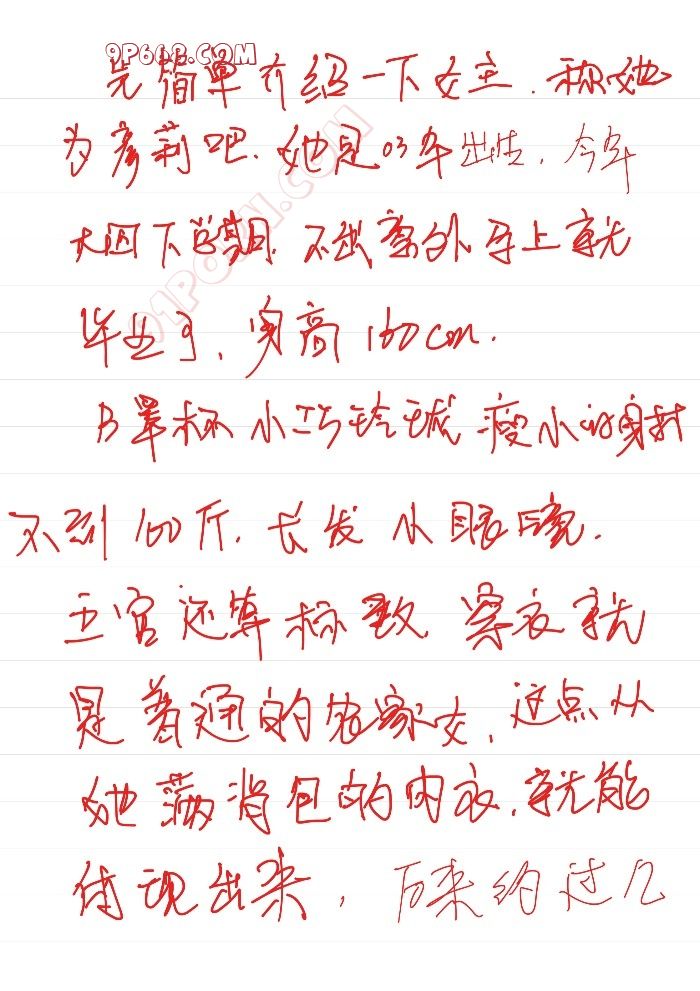 9P668.COM
先简单介绍一下女主.称她
为彦莉吧.她是03年出生,今年
大四下学期.不出意外马上就
毕业了,身高160cm.
B罩杯小巧玲珑瘦小的身材
不到100斤.长发小眼睛.
五官还算标致.穿衣就
是普通的居家女,这点从
她满背包的内衣,就能
体现出来,后来约过几
91PORN.COM